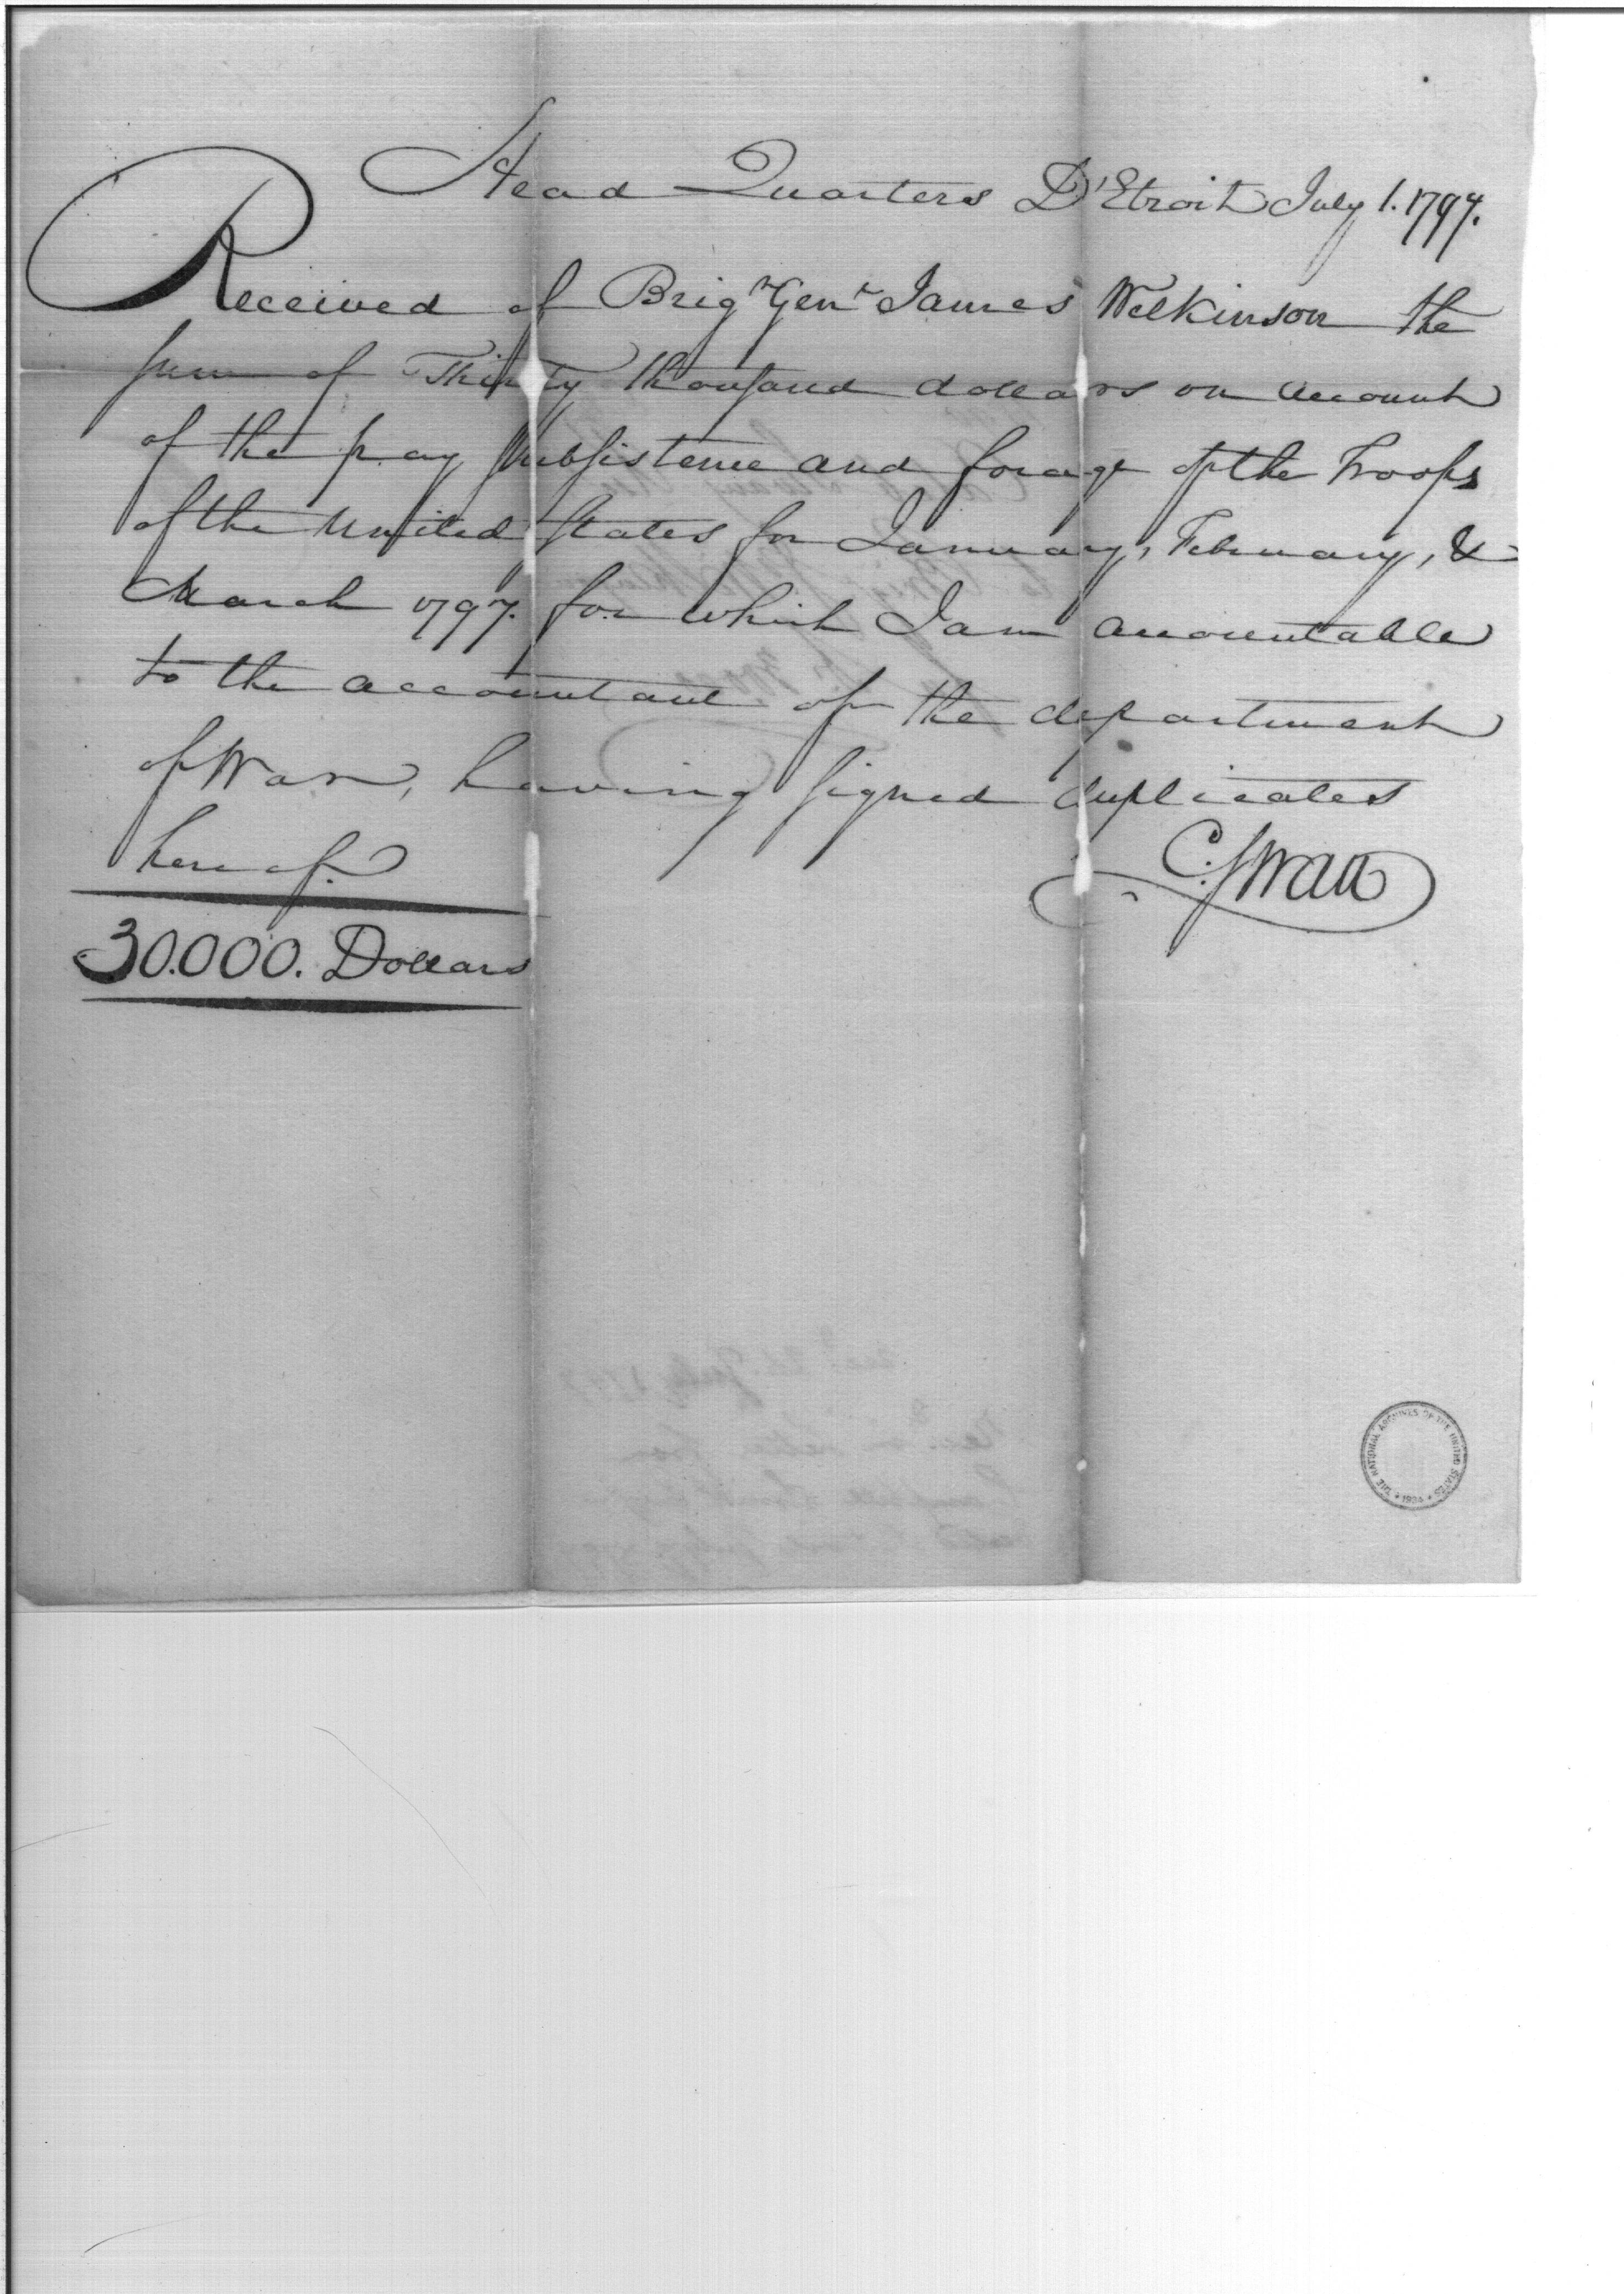 Head Quarters D'Etroit July 1. 1797.
Received of Brigr Genl James Wilkinson the
sum of Thirty thousand dollars on account
of the pay subsistence and forage of the Troops
of the United States for January, February, &
March 1797. for which I am accountable
to the accountant of the department
of War, having signed duplicates
hereof.
C. Swan
30.000. Dollars
THE NATIONAL ARCHIVES OF THE UNITED STATES
* 1934 *